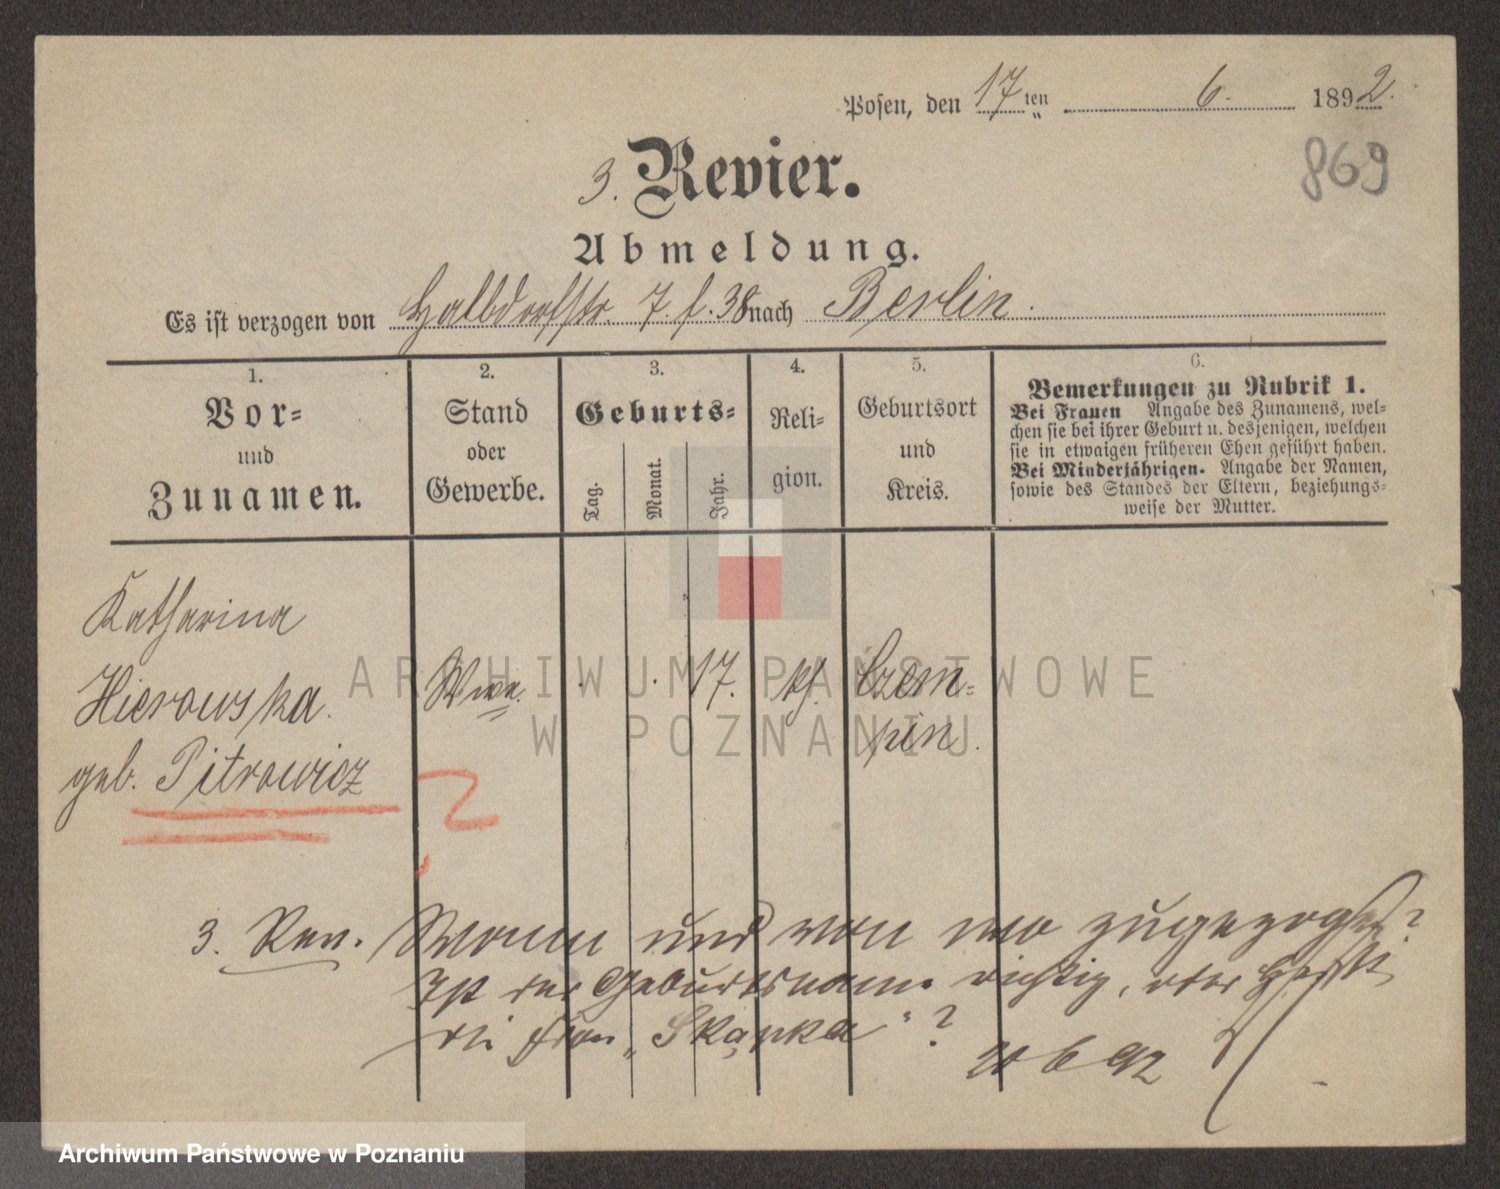 Posen, den 17ten 6. 1892.
869
3. Revier.
Abmeldung.
Es ist verzogen von Halbdorfstr. 7. f. 38 nach Berlin.
1.
Vor-
und
Zunamen.
2.
Stand
oder
Gewerbe.
3.
Geburts-
Tag.
Monat.
Jahr.
4.
Reli-
gion.
5.
Geburtsort
und
Kreis.
6.
Bemerkungen zu Rubrik 1.
Bei Frauen Angabe des Zunamens, wel-
chen sie bei ihrer Geburt u. desjenigen, welchen
sie in etwaigen früheren Ehen geführt haben.
Bei Minderjährigen. Angabe der Namen,
sowie des Standes der Eltern, beziehungs-
weise der Mutter.
Katharina
Hierowska.
geb. Pitrowicz
Wwe.
17.
kf.
Czem-
pin.
?
3. Rev. Wann und von wo zugezogen?
Ist der Geburtsname richtig, oder heißt
die Frau „Skąpka"?
92
ARCHIWUM PAŃSTWOWE
W POZNANIU
Archiwum Państwowe w Poznaniu